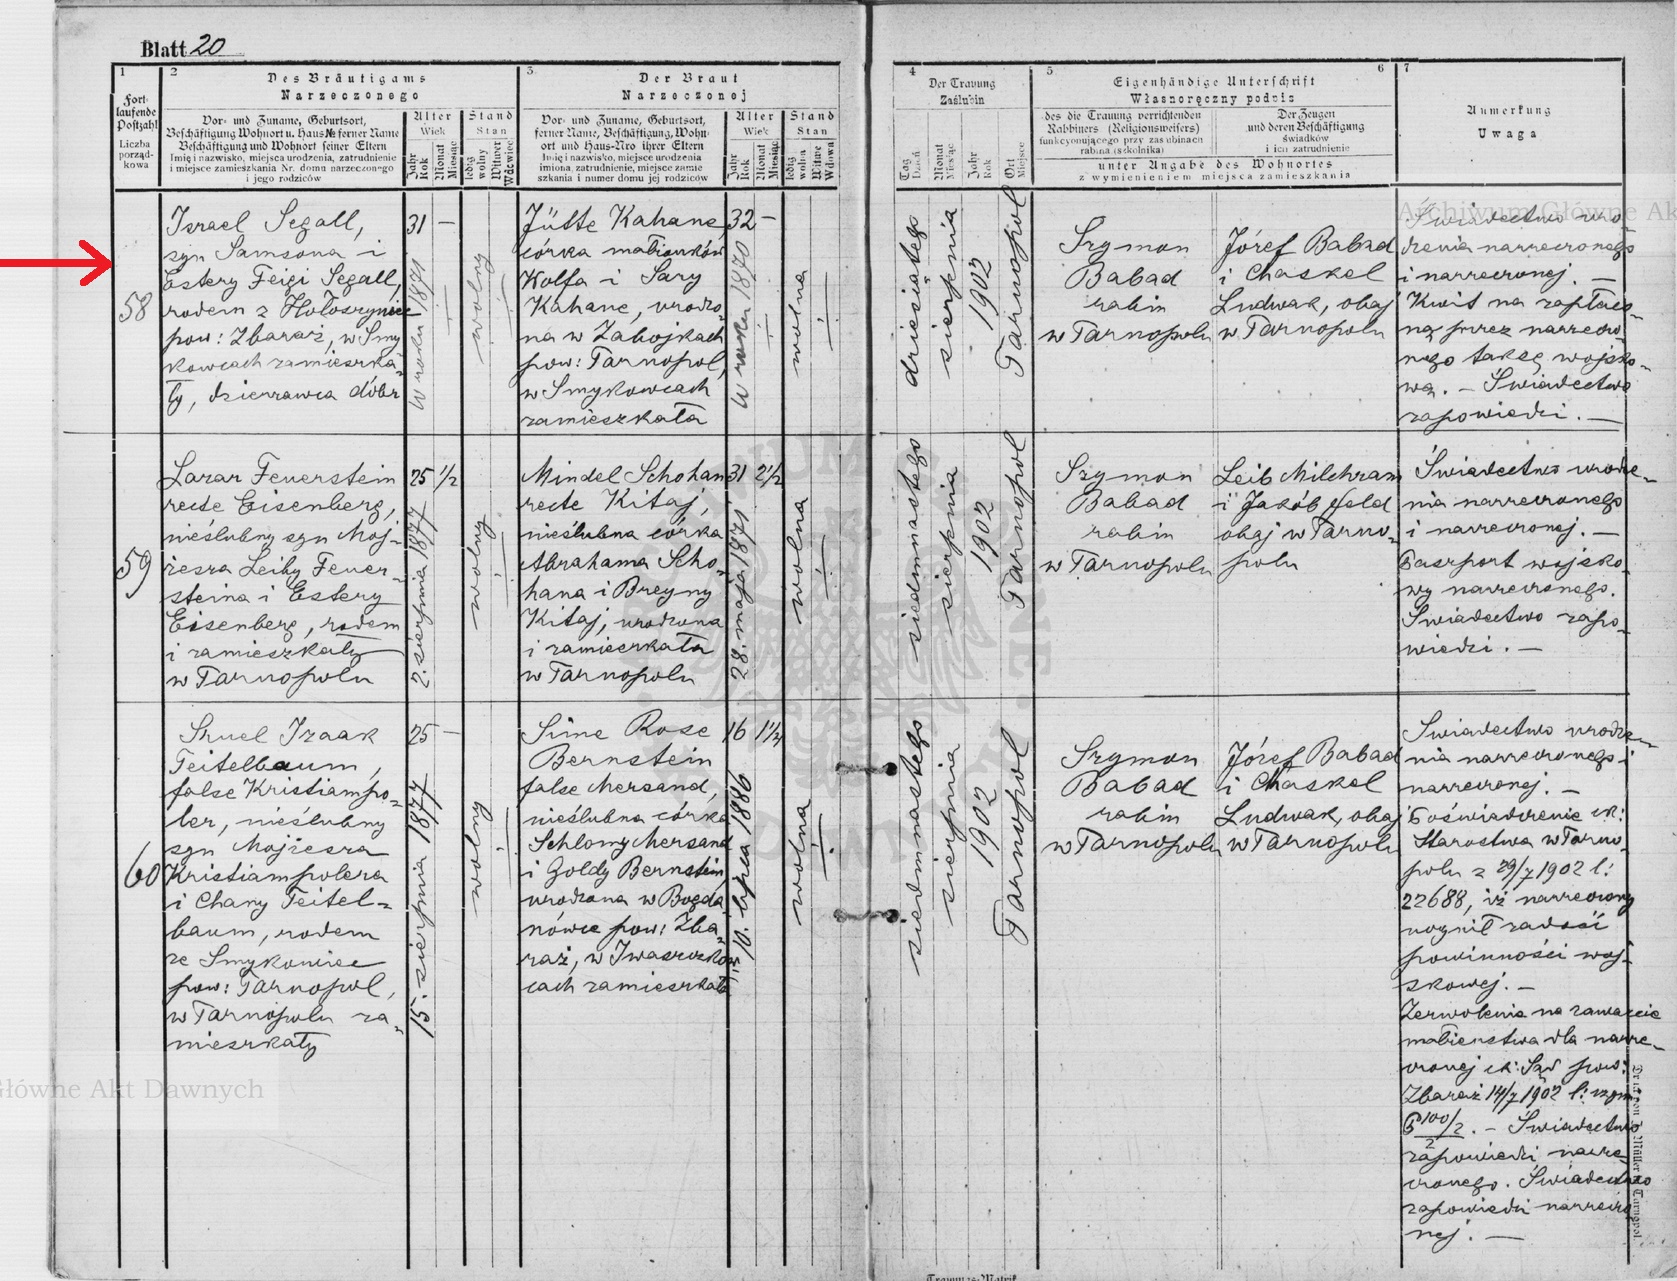 Blatt 20
1
Fort-
laufende
Postzahl
Liczba
porząd-
kowa
2
Des Bräutigams
Narzeczonego
Vor- und Zuname, Geburtsort,
Beschäftigung Wohnort u. Haus № ferner Name
Beschäftigung und Wohnort seiner Eltern
Imię i nazwisko, miejsca urodzenia, zatrudnienie
i miejsce zamieszkania Nr. domu narzeczonego
i jego rodziców
Alter
Wiek
Jahr
Rok
Monat
Miesiąc
Stand
Stan
ledig
wolny
Witwer
Wdowiec
3
Der Braut
Narzeczonej
Vor- und Zuname, Geburtsort,
ferner Name, Beschäftigung, Wohn-
ort und Haus-Nro ihrer Eltern
Imię i nazwisko, miejsce urodzenia
imiona, zatrudnienie, miejsce zamie
szkania i numer domu jej rodziców
Alter
Wiek
Jahr
Rok
Monat
Miesiąc
Stand
Stan
ledig
wolna
Witwe
Wdowa
4
Der Trauung
Zaślubin
Tag
Dzień
Monat
Miesiąc
Jahr
Rok
Ort
Miejsce
5
6
Eigenhändige Unterschrift
Własnoręczny podpis
des die Trauung verrichtenden
Rabbiners (Religionsweisers)
funkcyonującego przy zaślubinach
rabina (szkolnika)
Der Zeugen
und deren Beschäftigung
świadków
i ich zatrudnienie
unter Angabe des Wohnortes
z wymienieniem miejsca zamieszkania
7
Anmerkung
Uwaga
58
Israel Segall,
syn Samsona i
Estery Feigi Segall,
rodem z Hołoszyniec
pow: Zbaraż, w Smy
kowcach zamieszka-
ły, dzierżawca dóbr
31 —
W roku 1871
wolny
Jütte Kahane,
córka małżonków
Wolfa i Sary
Kahane, urodzo-
na w Zabojkach
pow: Tarnopol,
w Smykowcach
zamieszkała
32 —
W roku 1870
wolna
dziesiątego
sierpnia
1902
Tarnopol
Szymon
Babad
rabin
w Tarnopolu
Józef Babad
i Chaskel
Ludwak, obaj
w Tarnopolu
Świadectwo uro
dzenia narzeczonego
i narzeczonej. —
Kwit na zapłaco-
ną przez narzeczo
nego taksę wojsko-
wą. — Świadectwo
zapowiedzi. —
59
Lazar Feuerstein
recte Eisenberg,
nieślubny syn Moj-
żesza Leiby Feuer-
steina i Estery
Eisenberg, rodem
i zamieszkały
w Tarnopolu
25 1/2
2. sierpnia 1877
wolny
Mindel Schohan
recte Kitaj,
nieślubna córka
Abrahama Scho-
hana i Breyny
Kitaj, urodzona
i zamieszkała
w Tarnopolu
31 2 1/2
28. maja 1871
wolna
siedmnastego
sierpnia
1902
Tarnopol
Szymon
Babad
rabin
w Tarnopolu
Leib Milchram
i Jakób Feld
obaj w Tarno-
polu
Świadectwo urodze-
nia narzeczonego
i narzeczonej. —
Paszport wojsko-
wy narzeczonego.
Świadectwo zapo-
wiedzi. —
60
Sruel Izaak
Teitelbaum,
false Kristiampo-
ler, nieślubny
syn Mojżesza
Kristiampolera
i Chany Teitel-
baum, rodem
ze Smykowiec
pow: Tarnopol,
w Tarnopolu za-
mieszkały
25 —
15. sierpnia 1877
wolny
Sime Rose
Bernstein
false Mersand,
nieślubna córka
Schlomy Mersand
i Goldy Bernstein,
urodzona w Bogda
nówce pow: Zba-
raż, w Iwaszków-
cach zamieszkała
16 1 1/4
10. lipca 1886
wolna
siedmnastego
sierpnia
1902
Tarnopol
Szymon
Babad
rabin
w Tarnopolu
Józef Babad
i Chaskel
Ludwak, obaj
w Tarnopolu
Świadectwo urodze-
nia narzeczonego i
narzeczonej. —
Poświadczenie ck:
Starostwa w Tarno-
polu z 29/7 1902 l:
22688, iż narzeczony
uczynił zadość
powinności woj-
skowej. —
Zezwolenie na zawarcie
małżeństwa dla narze-
czonej ck: Sąd pow:
Zbaraż 14/7 1902 l:
P 100/2 . — Świadectwo
2
zapowiedzi narze-
czonego. Świadectwo
zapowiedzi narzeczo
nej. —
Archiwum Główne Ak
Główne Akt Dawnych
Trauungs-Matrik